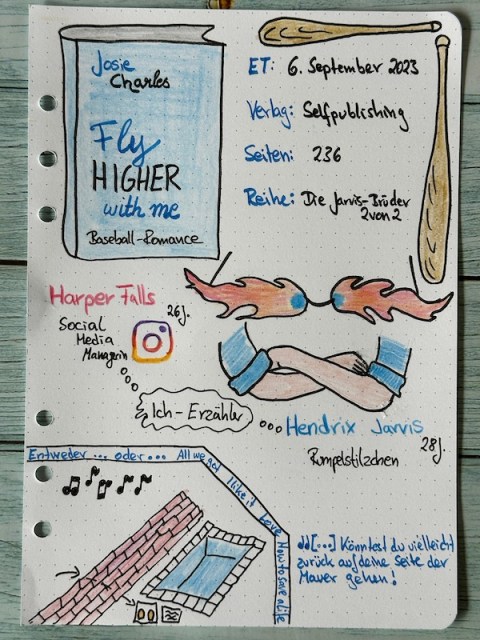 Josie
Charles
Fly
HIGHER
with me
Baseball-Romance
ET: 6. September 2023
Verlag: Selfpublishing
Seiten: 236
Reihe: Die Jarvis-Brüder
2 von 2
Harper Falls
26 J.
Social
Media
Managerin
Ich-Erzähler
Hendrix Jarvis
28 J.
Rumpelstilzchen
Entweder ... oder ... All we got I like it Love How to save a life
[...] Könntest du vielleicht
zurück auf deine Seite der
Mauer gehen!